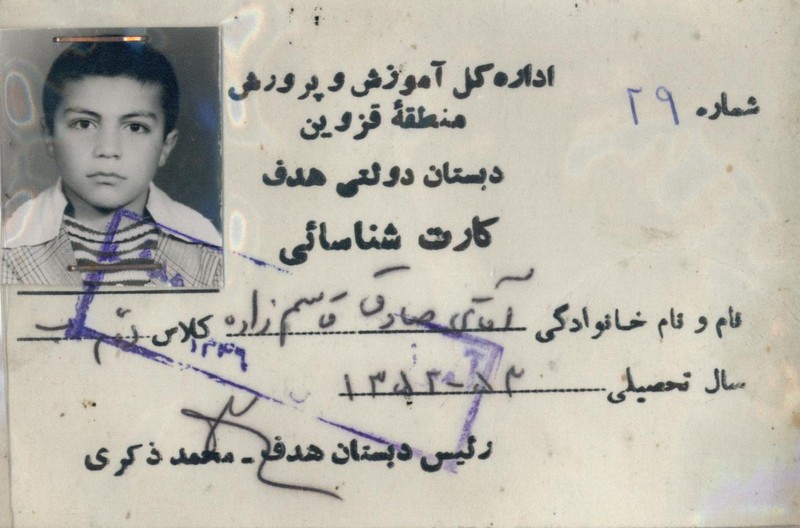 اداره کل آموزش و پرورش
شماره ۲۹
منطقهٔ قزوین
دبستان دولتی هدف
کارت شناسائی
نام و نام خانوادگی آقای صادق قاسم زاده کلاس ب
سال تحصیلی ۱۳۵۲-۵۳
رئیس دبستان هدف - محمد ذکری